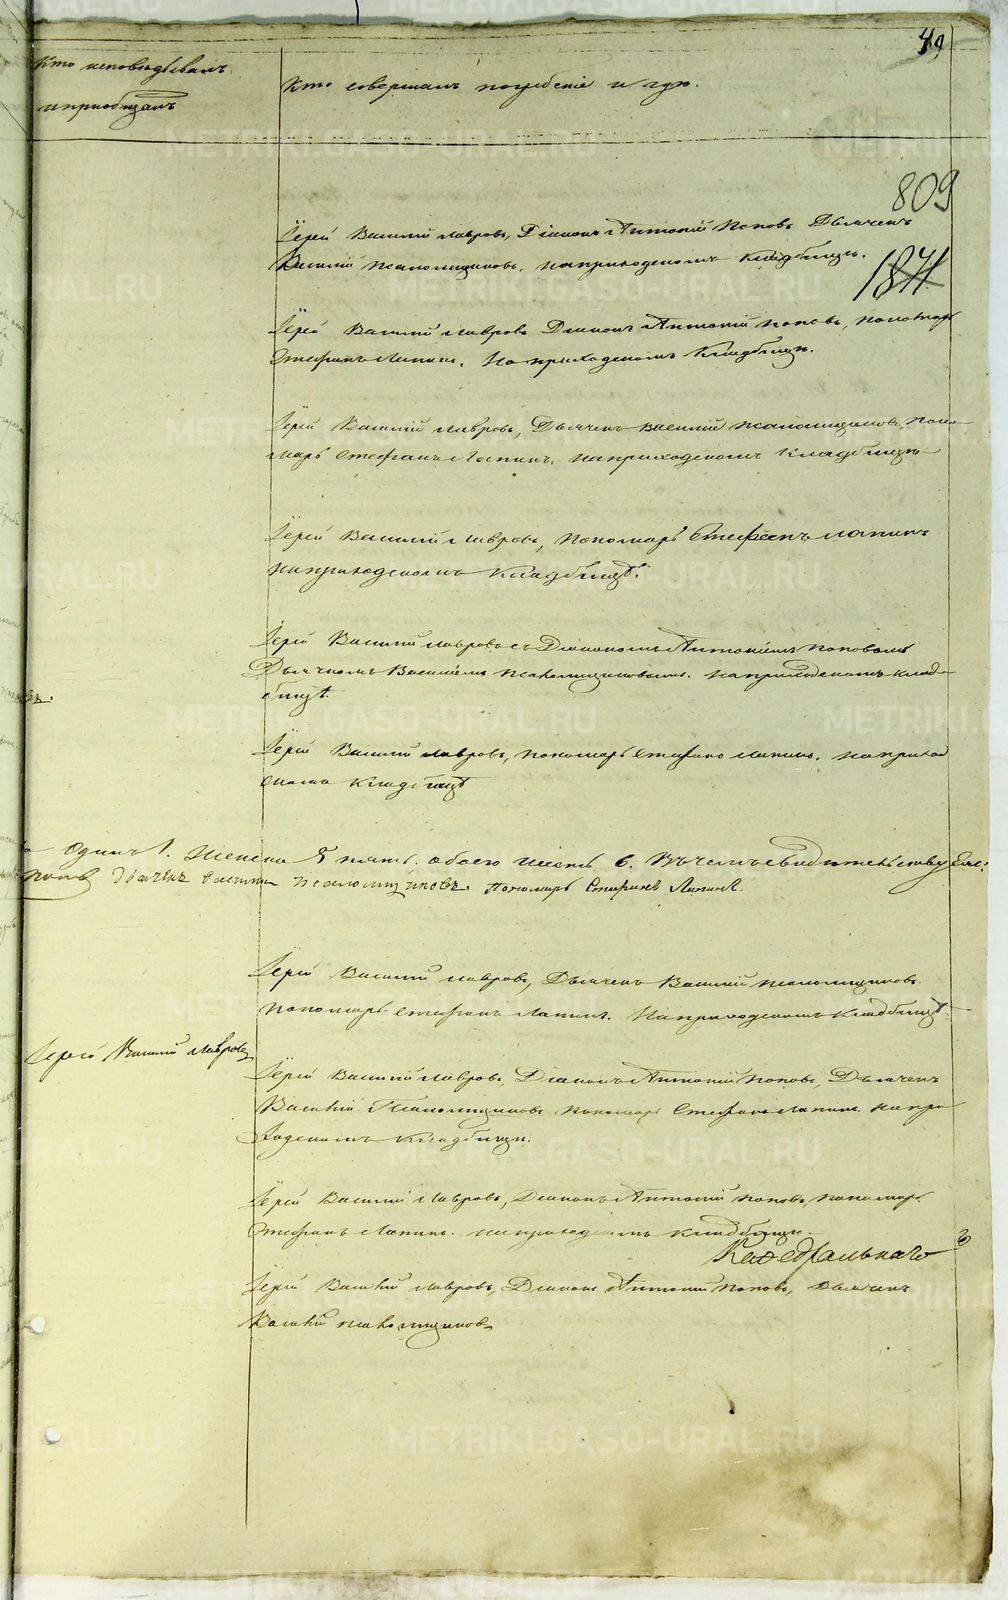 49
Кто исповѣдывалъ
и приобщалъ
Кто совершалъ погребеніе и гдѣ.
809
Іерей Василій Лавровъ, Діаконъ Антоній Поповъ Дьячекъ
Василій Псаломщиковъ, на приходскомъ кладбищѣ.
1871
Іерей Василій Лавровъ Діаконъ Антоній Поповъ, Пономарь
Стефанъ Лапинъ. На приходскомъ Кладбищѣ.
Іерей Василій Лавровъ, Дьячекъ Василій Псаломщиковъ, Поно-
марь Стефанъ Лапинъ. На приходскомъ Кладбищѣ
Іерей Василій Лавровъ, Пономарь Стефанъ Лапинъ
на приходскомъ Кладбищѣ.
Іерей Василій Лавровъ съ Діакономъ Антоніемъ Поповымъ
Дьячкомъ Василіемъ Псаломщиковымъ. На приходскомъ клад-
бищѣ.
Іерей Василій Лавровъ, Пономарь Стефанъ Лапинъ. На приход
скомъ Кладбищѣ
Одинъ 1. Женска 5 пять. обоего шесть 6. Въ чемъ свидѣтельствуемъ:
Поповъ Дьячекъ Василій Псаломщиковъ. Пономарь Стефанъ Лапинъ.
Іерей Василій Лавровъ, Дьячекъ Василій Псаломщиковъ
Пономарь Стефанъ Лапинъ. На приходскомъ Кладбищѣ.
Іерей Василій Лавровъ
Іерей Василій Лавровъ, Діаконъ Антоній Поповъ, Дьячекъ
Василій Псаломщиковъ Пономарь Стефанъ Лапинъ. На при
ходскомъ Кладбищѣ.
Іерей Василій Лавровъ, Діаконъ Антоній Поповъ, Пономарь
Стефанъ Лапинъ. На приходскомъ Кладбищѣ.
Каѳедральнаго
Іерей Василій Лавровъ, Діаконъ Антоній Поповъ, Дьячекъ
Василій Псаломщиковъ
METRIKI.GASO-URAL.RU